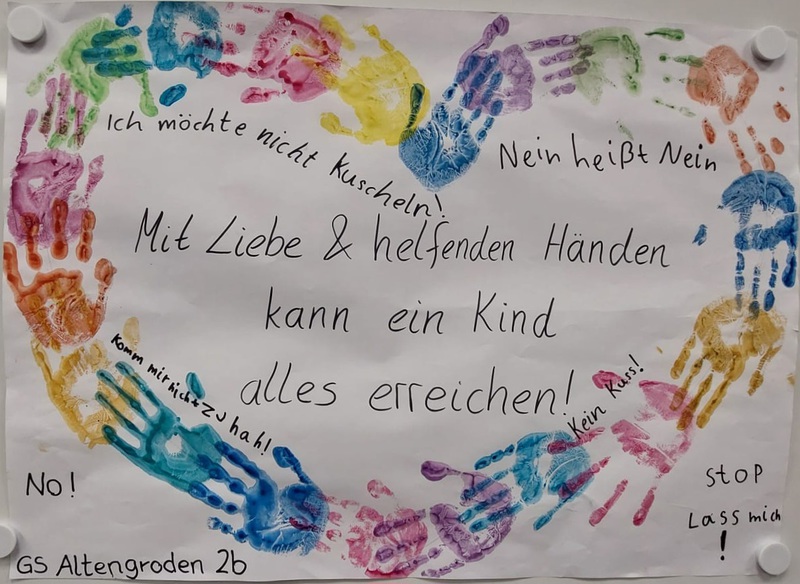 Ich möchte nicht Kuscheln!
Nein heißt Nein
Mit Liebe & helfenden Händen
kann ein Kind
alles erreichen!
Komm mir nicht zu nah!
Kein Kuss!
No!
STOP
Lass mich
!
GS Altengroden 2b